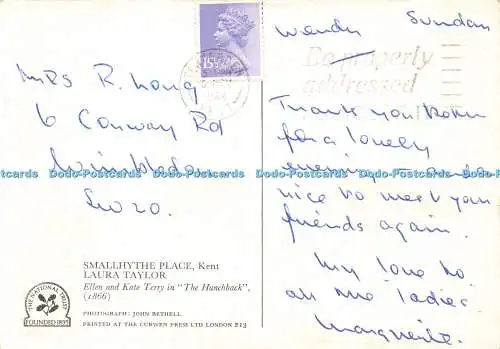 Mrs R. Long
6 Conway Rd
Wimbledon
SW20.
SMALLHYTHE PLACE, Kent
LAURA TAYLOR
Ellen and Kate Terry in "The Hunchback",
(1866)
PHOTOGRAPH: JOHN BETHELL
PRINTED AT THE CURWEN PRESS LTD LONDON E13
THE NATIONAL TRUST
FOUNDED 1895
15½P
Be properly
addressed
Wendy Sunday
Thank you both
for a lovely
evening
nice to meet your
friends again.
My love to
all the "ladies"
Marguerite.
Dodo-Postcards Dodo-Postcards Dodo-Postcards Dodo-Postcards